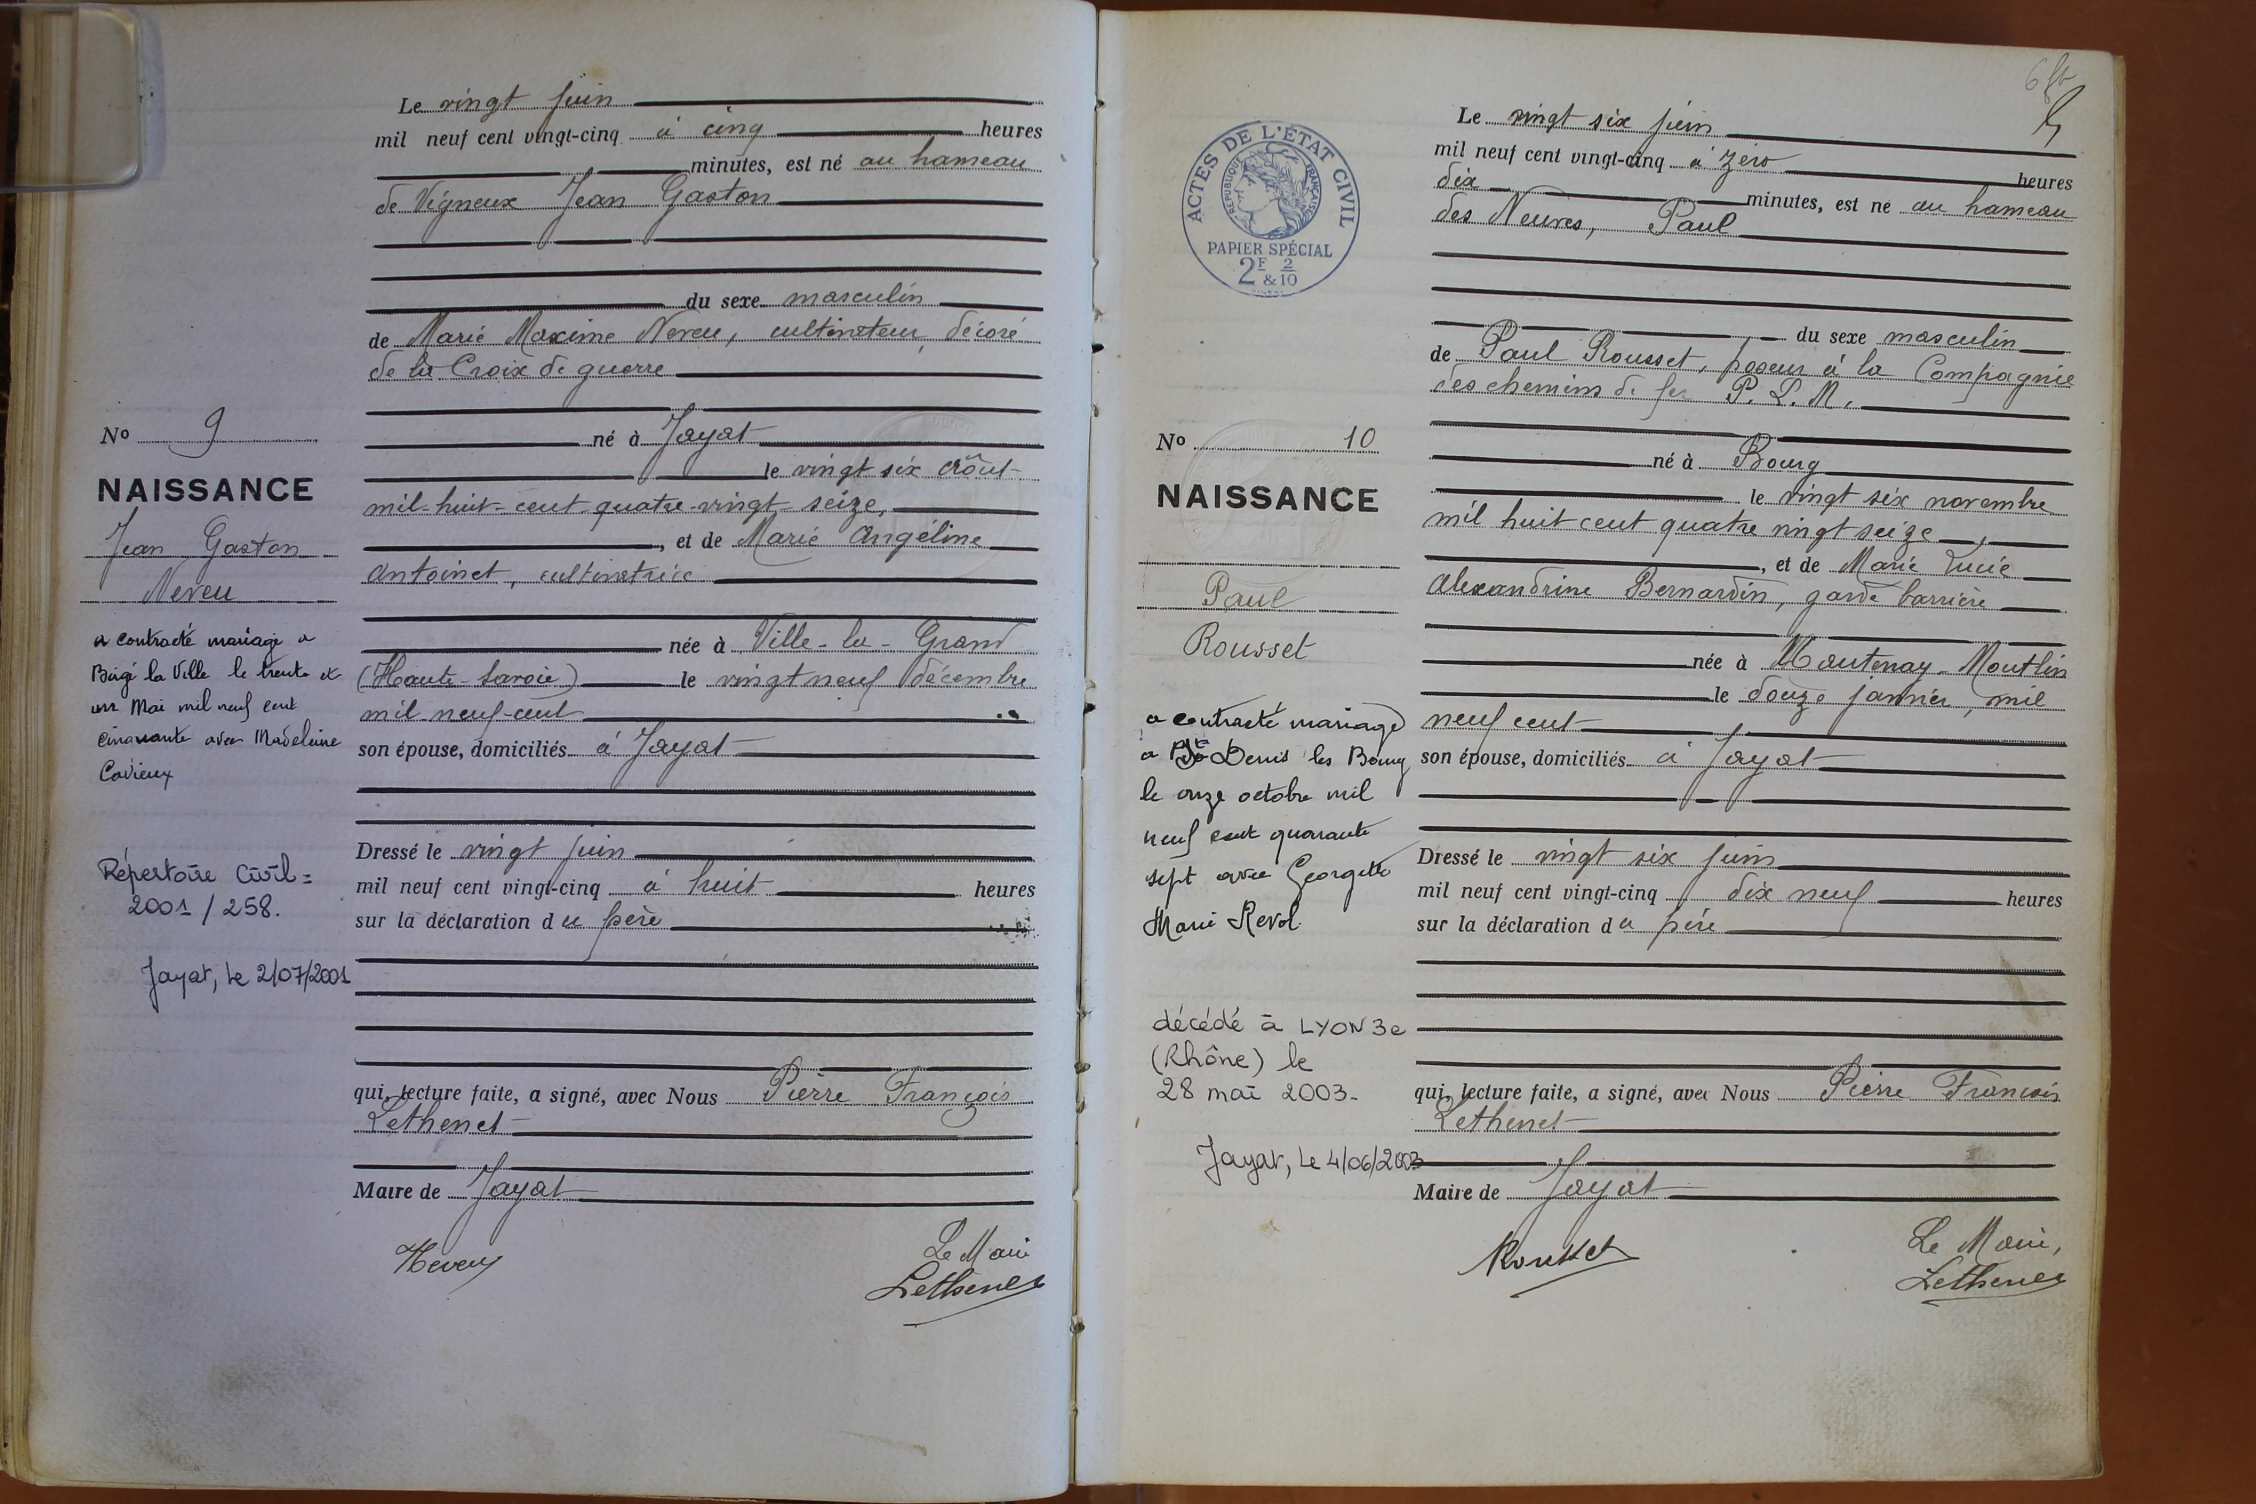 Le vingt juin
mil neuf cent vingt-cinq à cinq heures
minutes, est né au hameau
de Vigneux Jean Gaston
du sexe masculin
de Marie Maxime Neveu, cultivateur, décoré
de la Croix de guerre
né à Jayat
le vingt six août
mil-huit-cent-quatre-vingt-seize,
, et de Marie Angéline
Antoinet, cultivatrice
née à Ville-la-Grand
(Haute-Savoie) le vingt neuf décembre
mil neuf-cent
son épouse, domiciliés à Jayat
Dressé le vingt juin
mil neuf cent vingt-cinq à huit heures
sur la déclaration du père
qui, lecture faite, a signé, avec Nous Pierre François
Lethenet
Maire de Jayat
Neveu
Le Maire
Lethenet
No 9
NAISSANCE
Jean Gaston
Neveu
a contracté mariage a
la Ville le trente et
un Mai mil neuf cent
cinquante avec Madeleine
Cavieux
Répertoire Civil =
2001/258.
Jayat, le 2/07/2001
ACTES DE L'ÉTAT CIVIL
RÉPUBLIQUE FRANÇAISE
PAPIER SPÉCIAL
2F & 2/10
Le vingt six juin
mil neuf cent vingt-cinq à zéro heures
dix minutes, est né au hameau
des Neuves, Paul
du sexe masculin
de Paul Rousset, poseur à la Compagnie
des chemins de fer P. L. M.
né à Bourg
le vingt six novembre
mil huit cent quatre vingt seize,
, et de Marie Lucie
Alexandrine Bernardin, garde barrière
née à Mantenay-Montlin
le douze janvier, mil
neuf cent
son épouse, domiciliés à Jayat
Dressé le vingt six juin
mil neuf cent vingt-cinq dix neuf heures
sur la déclaration du père
qui, lecture faite, a signé, avec Nous Pierre François
Lethenet
Maire de Jayat
Rousset
Le Maire,
Lethenet
No 10
NAISSANCE
Paul
Rousset
a contracté mariage
a St Denis les Bourg
le onze octobre mil
neuf cent quarante
sept avec Georgette
Marie Revol
décédé à LYON 3e
(Rhône) le
28 mai 2003.
Jayat, le 4/06/2003